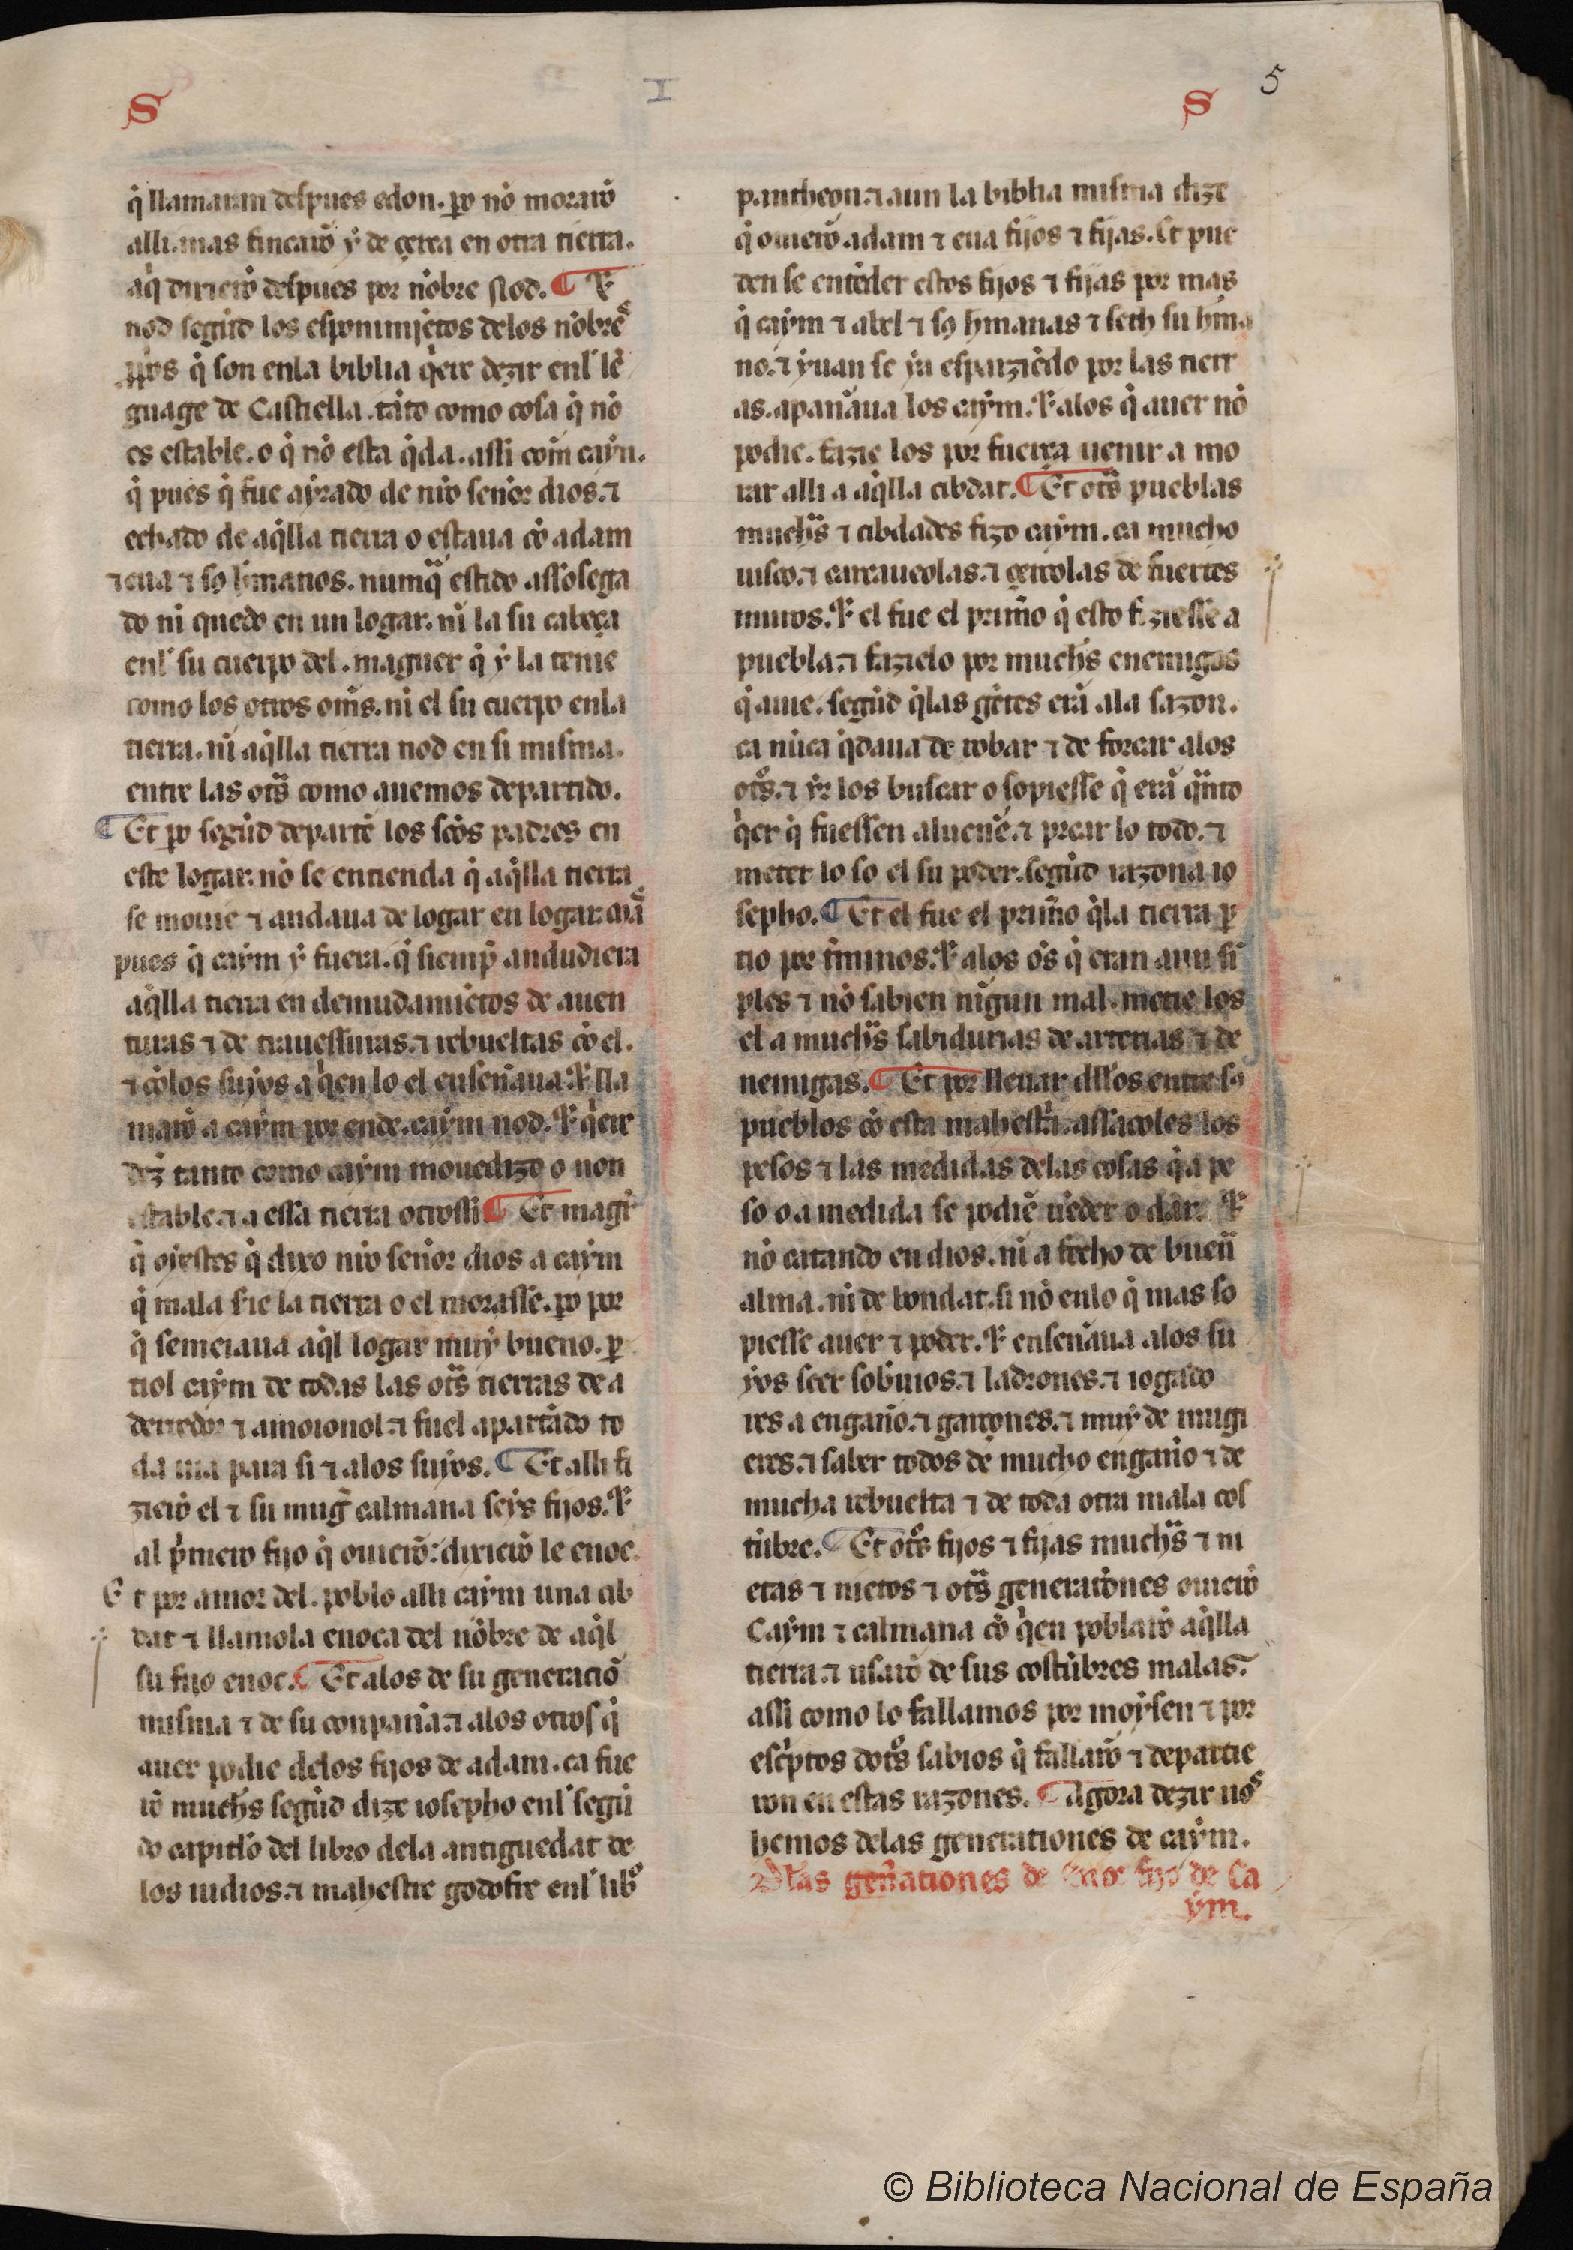 S I S 5
q̇ llamaron despues edon. ꝑo nȯ moraro᷆
alli. mas fincaro᷆ ẏ de çerca en otra tierra.
aq̇ dixiero᷆ despues por nȯbre nod. ¶ ⁊
nod segũd los esponimiẽtos delos nȯbres
ꝓpios q̇ son enla biblia q̇ere dezir enl lẽ
guage de Castiella. tãto como cosa q̇ nȯ
es estable. o q̇ nȯ esta q̇da. assi com caẏn.
q̇ pues q̇ fue aẏrado de nr̃o señor dios. ⁊
echado de aq̇lla tierra o estaua cȯ adam
⁊ eua ⁊ so hr̃manos. numq̃ estido assosega
do ni quedo en un logar. ni la su cabeça
enl su cuerpo del. maguer q̇ ẏ la tenie
como los otros om̃s. ni el su cuerpo enla
tierra. ni aq̇lla tierra nod en si misma.
entre las ots̃ como auemos departido.
¶ Et ꝑo segũd departẽ los sc̃os padres en
este logar. nȯ se entienda q̇ aq̇lla tierra
se mouie ⁊ andaua de logar en logar. mas
pues q̇ caẏm ẏ fuera. q̇ siemp̃ andudiera
aq̇lla tierra en demudamiẽtos de auen
turas ⁊ de trauessuras. ⁊ rebueltas cȯ el.
⁊ cȯlos suẏos a q̇en lo el enseñaua. ⁊ lla
maro᷆ a caẏm por ende. caẏm nod. ⁊ q̇ere
dez̃ tanto como caẏm mouedizo o non
estable. ⁊ a essa tierra otrossi ¶ Et magr̃
q̇ oẏestes q̇ dixo nr̃o señor dios a caẏm
q̇ mala fue la tierra o el morasse. ꝑo por
q̇ semeiaua aq̇l logar muẏ bueno. ꝑ
tiol caẏm de todas las ots̃ tierras de a
derredor ⁊ amoionol. ⁊ fuel apartãdo to
da uia para si ⁊ alos suẏos. ¶ Et alli fi
ziero᷆ el ⁊ su mug̃ calmana seẏs fijos. ⁊
al p̃mero fijo q̇ ouiero᷆: dixiero᷆ le enoc.
Et por amor del. poblo alli caẏm una cib
dat ⁊ llamola enoca del nȯbre de aq̇l
su fijo enoc. ¶ Et alos de su generaciȯ
misma ⁊ de su conpaña. ⁊ alos otros q̇
auer podie delos fijos de adam. ca fue
ro᷆ muchos segũd dize iosepho enl segũ
do capitl̃o del libro dela antiguedat de
los iudios. ⁊ mahestre godofre enl libro
pantheon. ⁊ aun la biblia misma dize
q̇ ouiero᷆ adam ⁊ eua fijos ⁊ fijas. Et pue
den se entẽder estos fijos ⁊ fijas por mas
q̇ caẏm ⁊ abel ⁊ so hr̃manas ⁊ seth su hr̃ma
no. ⁊ ẏuan se ẏa esparziẽdo por las tierr
as. apañaua los caẏm. ⁊ alos q̇ auer nȯ
podie. fazie los por fuerça uenir a mo
rar alli a aq̇lla cibdat. ¶ Et ots̃ pueblas
muchas ⁊ cibdades fizo caẏm. ca mucho
uisco. ⁊ carcaueolas. ⁊ çercolas de fuertes
muros. ⁊ el fue el prim̃o q̇ esto fiziesse a
puebla. ⁊ fazielo por muchos enemigos
q̇ auie. segũd q̇las gẽtes erã ala sazon.
ca nũca q̇daua de robar ⁊ de forçar alos
ots̃. ⁊ ẏr los buscar o sopiesse q̇ erã q̃nto
q̇er q̇ fuessen alueñe. ⁊ prear lo todo. ⁊
meter lo so el su poder. segũd razona io
sepho. ¶ Et el fue el prim̃o q̇la tierra ꝑ
tio por t̃minos. ⁊ alos os̃ q̇ eran aun si᷆
ples ⁊ nȯ sabien nĩgun mal. metie los
el a muchas sabidurias de arterias ⁊ de
nemigas. ¶ Et por lleuar dellos entre so
pueblos cȯ esta mahestria. assacoles los
pesos ⁊ las medidas delas cosas q̇ a pe
so o a medida se podiẽ uẽder o dar. ⁊
nȯ catando en dios. ni a fecho de buena
alma. ni de bondat. si nȯ enlo q̇ mas so
piesse auer ⁊ poder. ⁊ enseñaua alos su
ẏos seer sobuios. ⁊ ladrones. ⁊ iogado
res a engaño. ⁊ garçones. ⁊ muẏ de mugi
eres. ⁊ saber todos de mucho engaño ⁊ de
mucha rebuelta ⁊ de toda otra mala cos
tũbre. ¶ Et ots̃ fijos ⁊ fijas muchas ⁊ ni
etas ⁊ nietos ⁊ ots̃ generatiȯnes ouiero᷆
Caẏm ⁊ calmana cȯ q̇en poblaro᷆ aq̇lla
tierra. ⁊ usaro᷆ de sus costũbres malas.
assi como lo fallamos por moẏsen ⁊ por
esc̃ptos dots̃ sabios q̇ fallaro᷆ ⁊ departie
ron en estas razones. ¶ Agora dezir uos
hemos delas generationes de caẏm.
Dlas geñationes de Enoc fijo de Ca
ẏm.
© Biblioteca Nacional de España